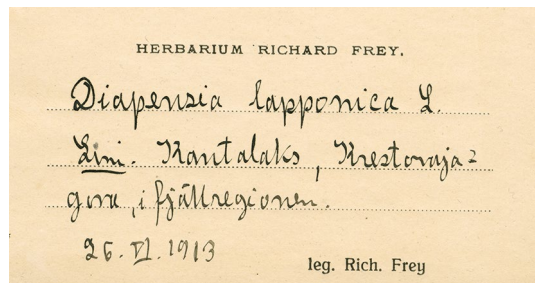 HERBARIUM RICHARD FREY.
Diapensia lapponica L.
Lim. Kantalaks, Krestovaja=
gora, i fjällregionen.
26.VI.1913
leg. Rich. Frey